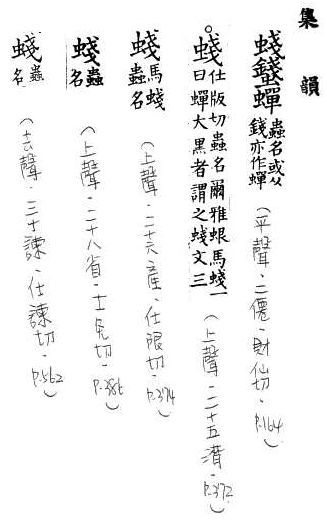 集韻
䗃蟬蟲名或从錢亦作蟬(平聲·二僊·財仙切·P.164)
。䗃仕版切蟲名爾雅蛝馬䗃一曰蟬大黑者謂之䗃文三(上聲·二十五潸·P.372)
䗃馬䗃蟲名(上聲·二十六產·仕限切·P.374)
䗃蟲名(上聲·二十八省·士免切·P.386)
䗃蟲名(去聲·三十諫·仕諫切·P.562)